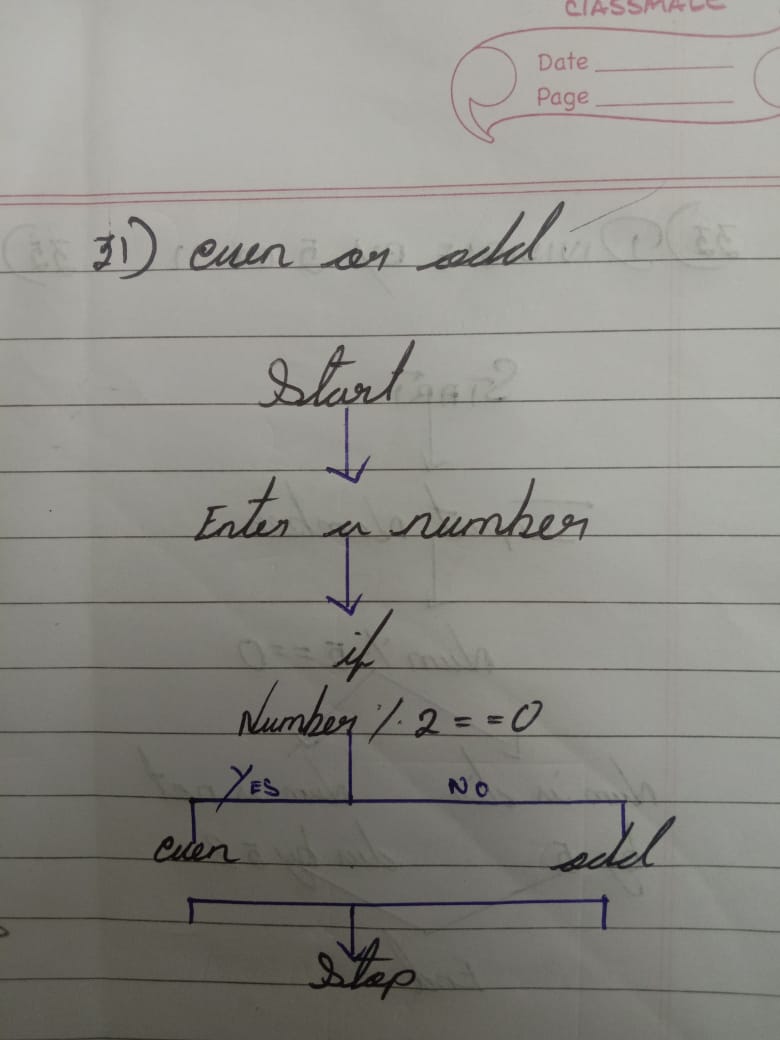 CLASSMATE
Date
Page
31) even or odd
Start
Enter a number
if
Number % 2 = = 0
YES NO
even odd
Stop